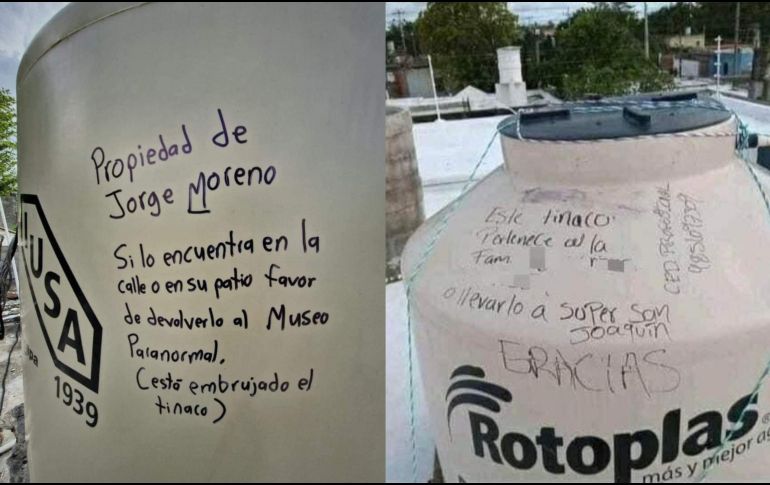 Propiedad de
Jorge Moreno
Si lo encuentra en la
calle o en su patio favor
de devolverlo al Museo
Paranormal,
(está embrujado el
tinaco)
USA
1939
Este tinaco
Pertenece a la
Fam
o llevarlo a super san
Joaquín
GRACIAS
Rotoplas
más y mejor ag